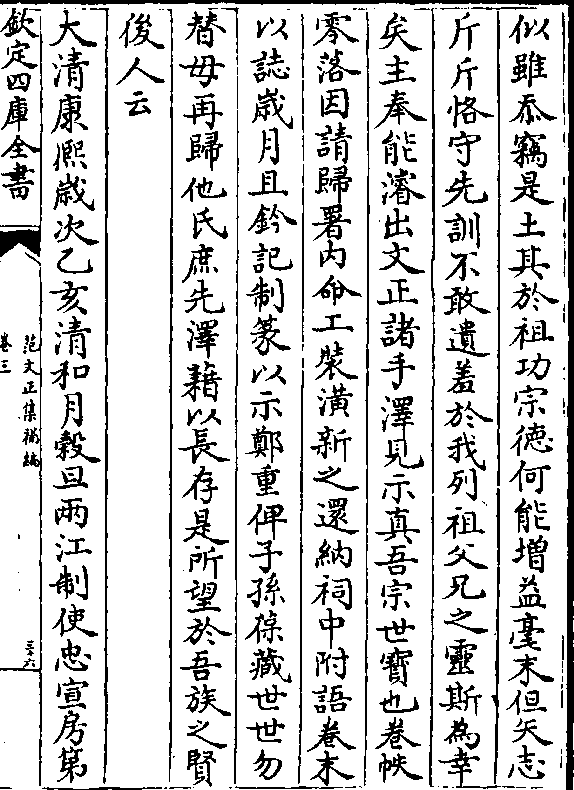 似雖忝竊是土其於祖功宗徳何能増益毫末但矢志
斤斤恪守先訓不敢遺羞於我列祖父兄之靈斯為幸
矣主奉能濬出文正諸手澤見示真吾宗世寶也卷帙
零落因請歸署内命工裝潢新之還納祠中附語卷末
以誌嵗月且鈐記制篆以示鄭重俾子孫葆藏世世勿
替毋再歸他氏庶先澤藉以長存是所望於吾族之賢
後人云
大清康熙嵗次乙亥清和月穀旦兩江制使忠宣房第
欽定四庫全書
范文正集補編
卷三
三十六